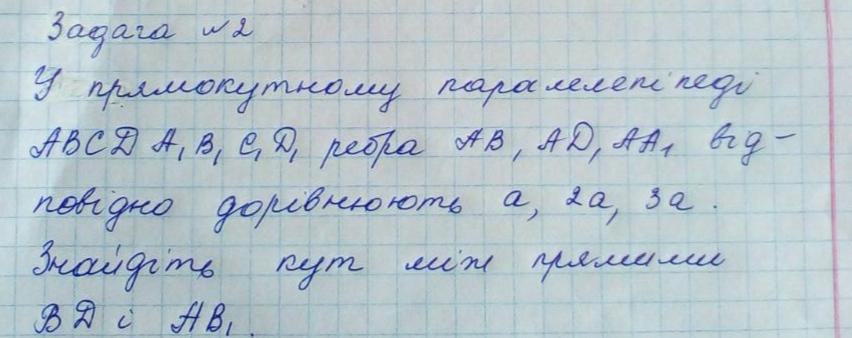 Задача №2
У прямокутному паралелепіпеді
ABCDA₁B₁C₁D₁ ребра AB, AD, AA₁ від-
повідно дорівнюють a, 2a, 3a.
Знайдіть кут між прямими
BD і AB₁.